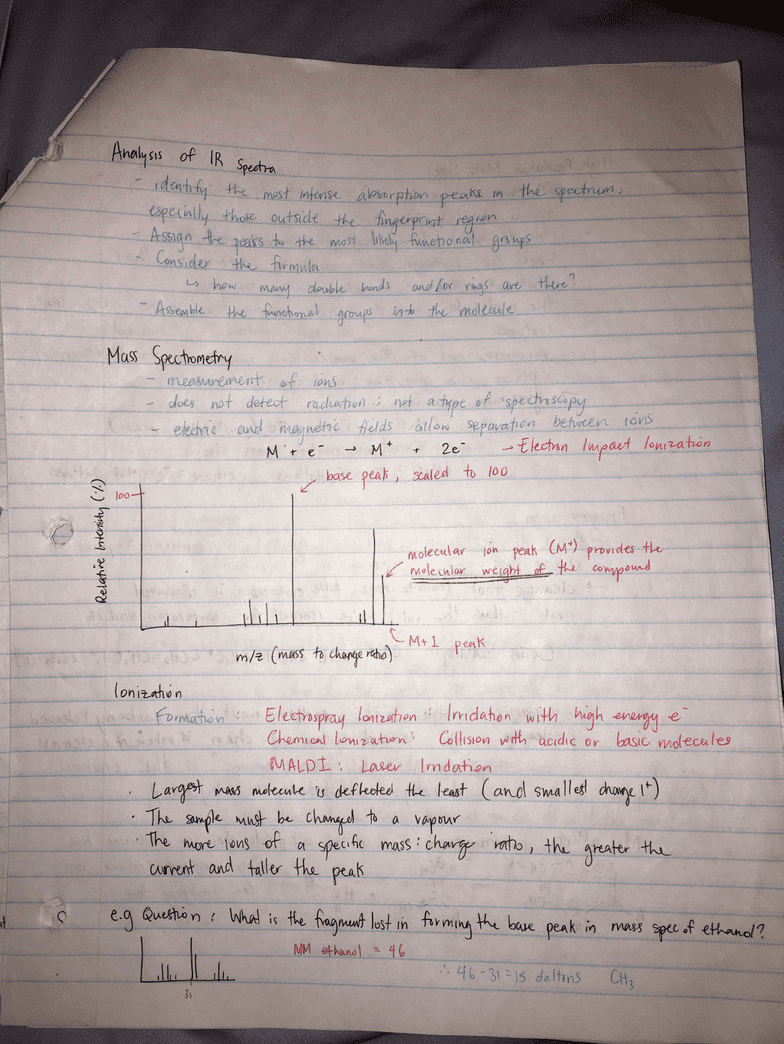 Analysis of IR Spectra
- identify the most intense absorption peaks in the spectrum,
especially those outside the fingerprint region
- Assign the peaks to the most likely functional groups
- Consider the formula
↳ how many double bonds and/or rings are there?
- Assemble the functional groups into the molecule
Mass Spectrometry
- measurement of ions
- does not detect radiation ; not a type of spectroscopy
- electric and magnetic fields allow separation between ions
M + e⁻ → M⁺ + 2e⁻ → Electron Impact Ionization
base peak, scaled to 100
100
Relative Intensity (%)
molecular ion peak (M⁺) provides the
molecular weight of the compound
M+1 peak
m/z (mass to charge ratio)
Ionization
Formation : Electrospray Ionization : Irridation with high energy e⁻
Chemical Ionization : Collision with acidic or basic molecules
MALDI : Laser Irridation
· Largest mass molecule is deflected the least (and smallest charge 1⁺)
· The sample must be changed to a vapour
· The more ions of a specific mass : charge ratio, the greater the
current and taller the peak
e.g Question : What is the fragment lost in forming the base peak in mass spec of ethanol?
MM ethanol = 46
∴ 46 - 31 = 15 daltons CH₃
31